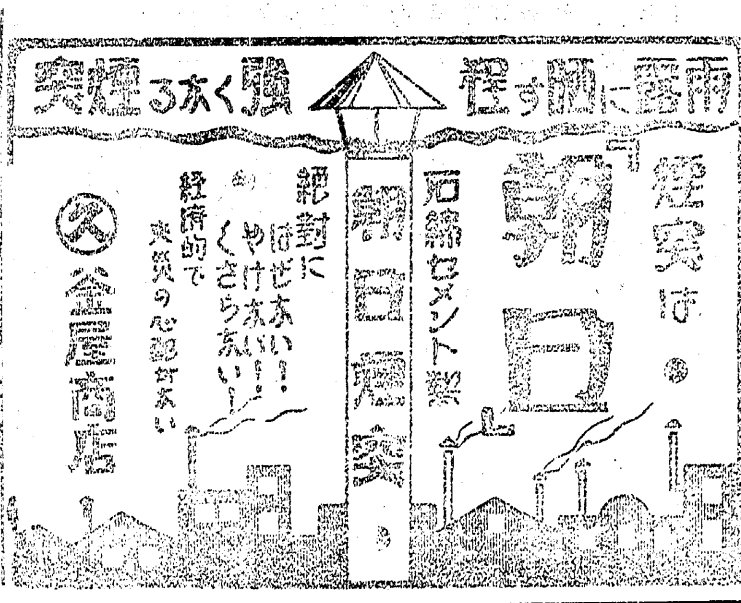 雨露に晒す程
強くなる煙突
煙突は
朝日
石綿セメント製
朝日煙突
絶対に
はぜない!
やけない!
くさらない!
経済的で
火災の心配がない
久 釜屋商店